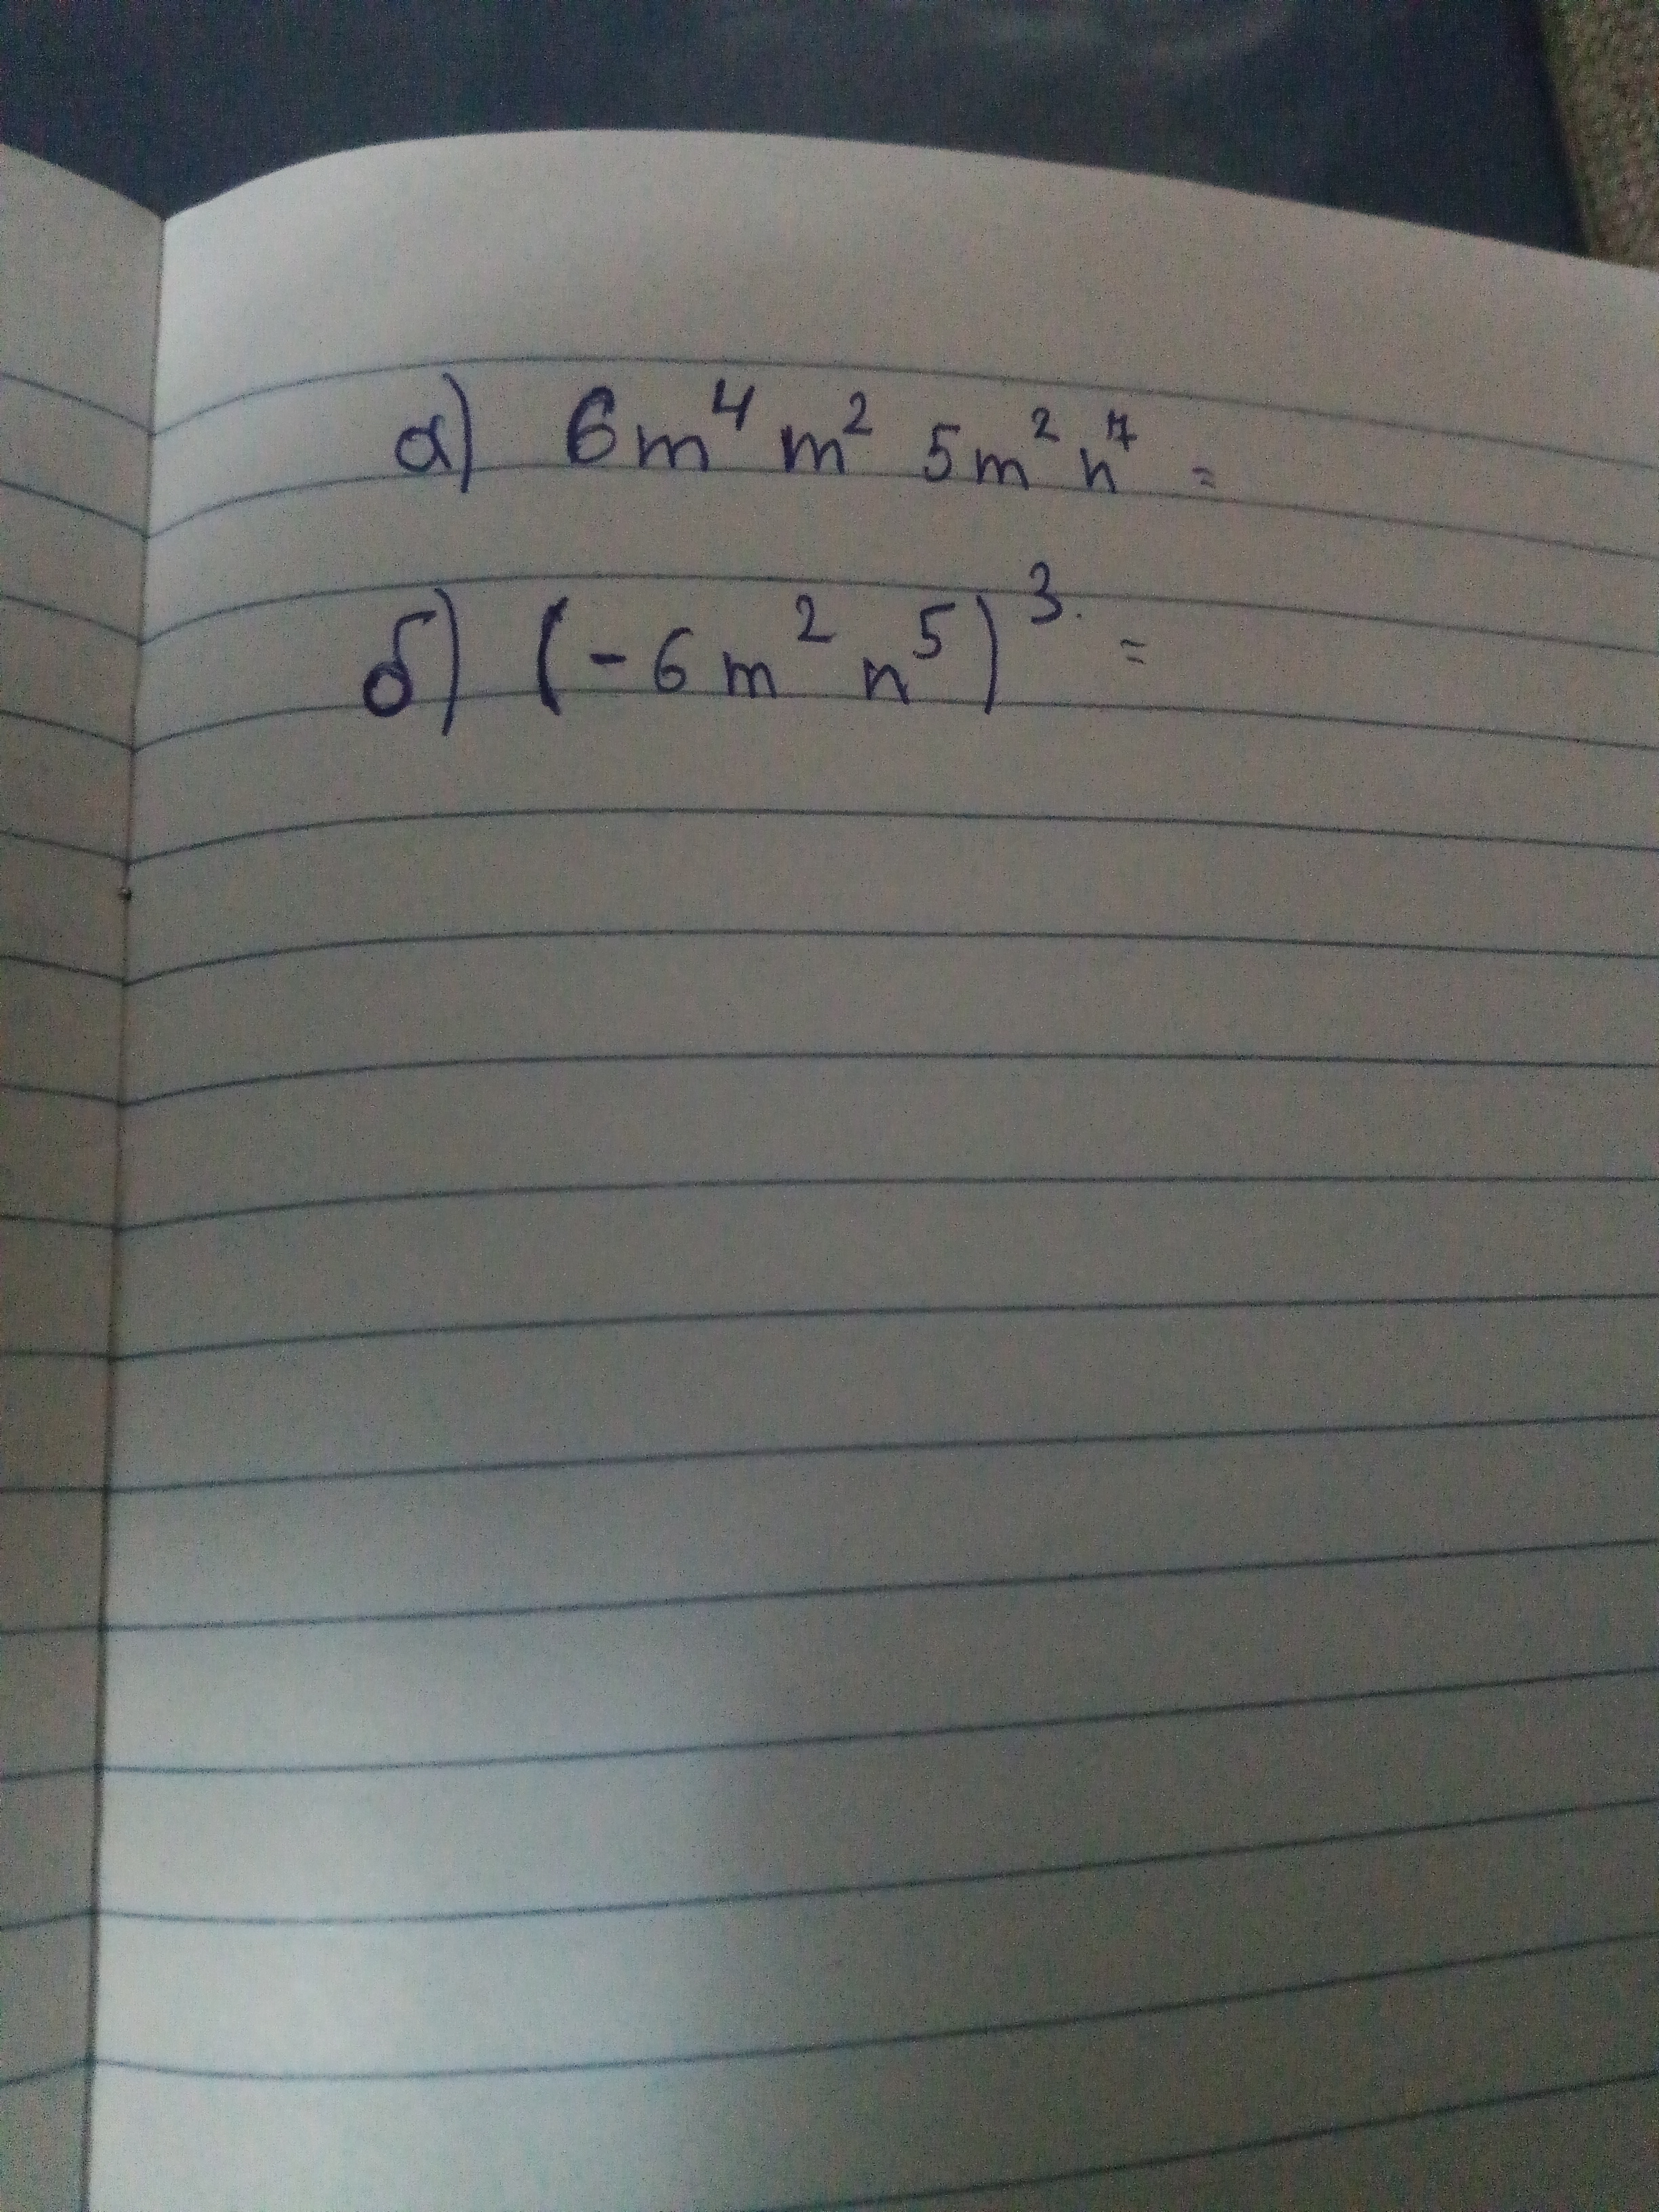 а) 6m⁴ m² 5m² n⁷ =
б) (-6m² n⁵)³ =